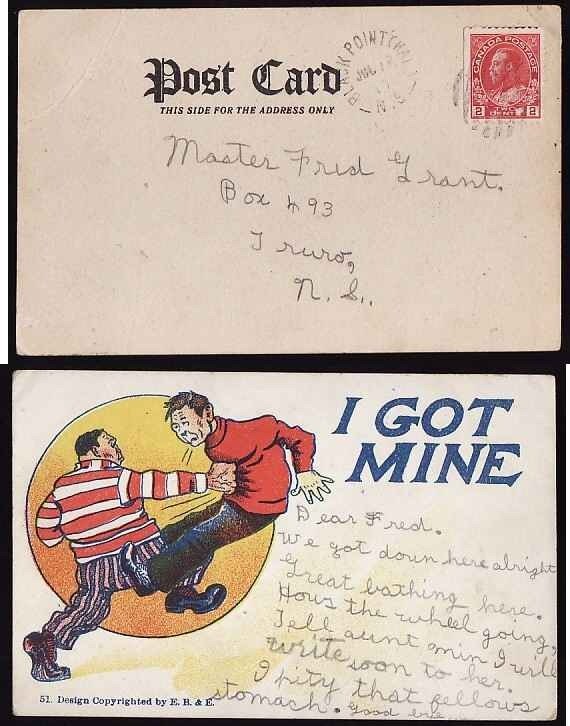 Post Card
THIS SIDE FOR THE ADDRESS ONLY
BLACK POINT
CANADA POSTAGE
2 CENTS 2
Master Fred Grant.
Box 493
Truro,
N. S.,
I GOT
MINE
Dear Fred.
We got down here alright
Great bathing here.
Hows the wheel going,
Tell aunt min I will
write soon to her.
I pity that fellows
stomach. Good bye
51. Design Copyrighted by E. B. & E.